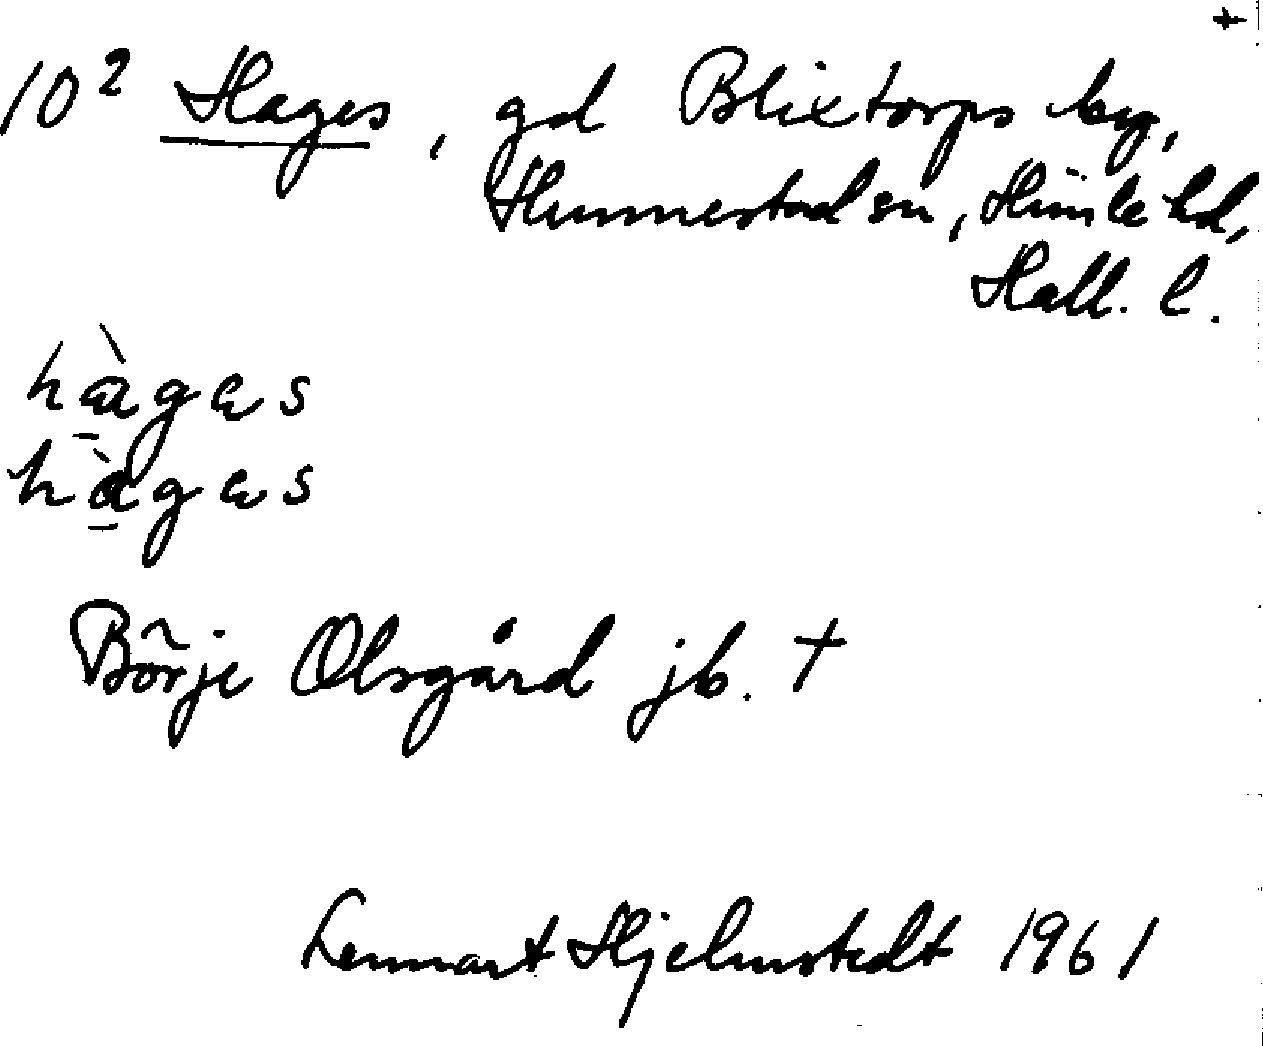 +
10² Hages, gd Blixtorps by,
Hunnestad sn, Himle hd,
Hall. l.
hà̱gæs
hà̱gæs
Börje Olsgård jb. †
Lennart Hjelmstedt 1961